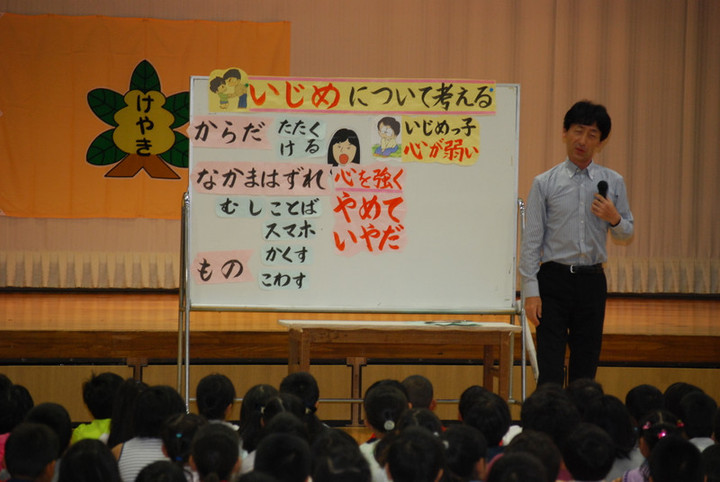 けやき
いじめについて考える
からだ
たたく
ける
いじめっ子
心が弱い
なかまはずれ
心を強く
むし
ことば
やめて
スマホ
いやだ
もの
かくす
こわす